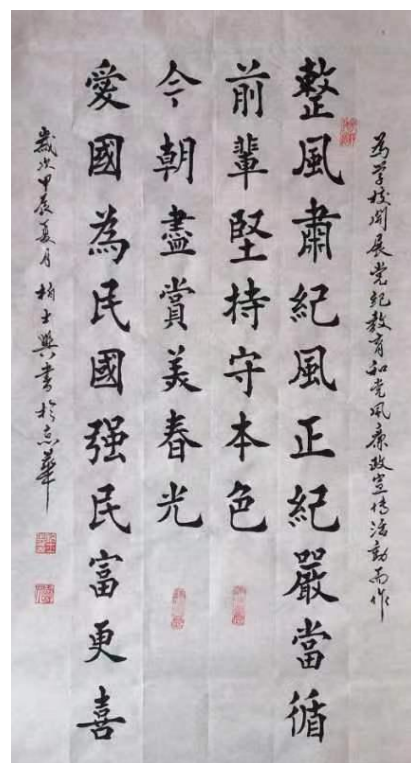 為学校開展党纪教育和党风廉政宣传活動而作
整風肅紀風正紀嚴當循
前輩堅持守本色
今朝盡賞美春光
愛國為民國强民富更喜
歲次甲辰夏月柏士興書於京華